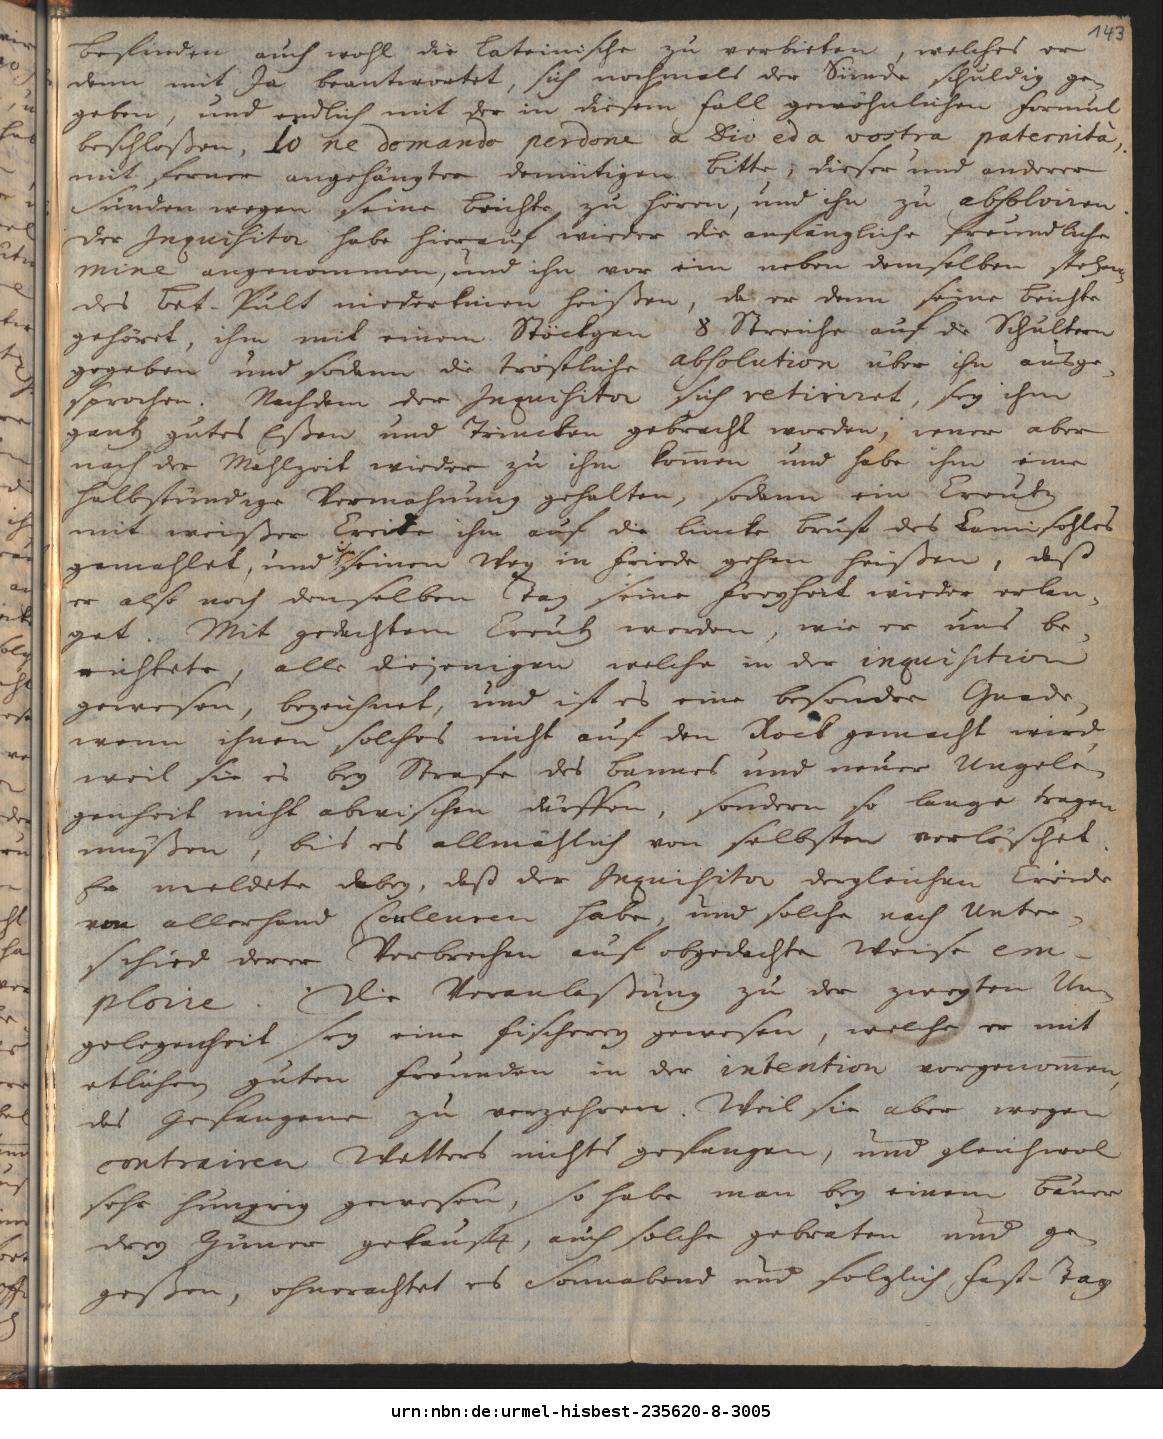 143
befinden auch wohl die Lateinische zu verbieten, welches er
denn mit Ja beantwortet, sich nochmals der Sünde schuldig ge-
geben, und endlich mit der in diesem Fall gewöhnlichen Formul
beschloßen, Io ne domando perdone a Dio ed a vostra paternità,
mit ferner angehängter demütigen Bitte, dieser und anderer
Sünden wegen seine Beichte zu hören, und ihn zu absolviren.
Der Inquisitor habe hierauf wieder die anfängliche freundliche
mine angenommen, und ihn vor ein neben demselben stehen-
des Bet-Pült niederknien heißen, da er denn seine Beichte
gehöret, ihm mit einem Stöckgen 8 Streiche auf die Schultern
gegeben und sodann die tröstliche absolution über ihn ausge-
sprochen. Nachdem der Inquisitor sich retiriret, sey ihm
gantz gutes Eßen und Trincken gebracht worden, jener aber
nach der Mahlzeit wieder zu ihm kom̅en und habe ihm eine
halbstündige Vermahnung gehalten, sodann ein Creutz
mit weißer Creide ihm auf die lincke Brust des Camisohles
gemahlet, und seinen Weg in Friede gehen heißen, daß
er also noch denselben Tag seine Freyheit wieder erlan-
get. Mit gedachtem Creutz werden, wie er uns be-
richtete, alle diejenigen welche in der inquisition
gewesen, bezeichnet, und ist es eine besondere Gnade,
wenn ihnen solches nicht auf den Rock gemacht wird,
weil sie es bey Strafe des Bannes und neuer Ungele-
genheit nicht abwischen dürffen, sondern so lange tragen
müßen, bis es allmählich von selbsten verlöschet.
Er meldete dabey, daß der Inquisitor dergleichen Creide
von allerhand Couleuren habe, und solche nach Unter-
schied derer Verbrechen auf obgedachte Weise em-
ploire. Die Veranlaßung zu der zweyten Un-
gelegenheit sey eine Fischerey gewesen, welche er mit
etlichen guten Freunden in der intention vorgenom̅en,
das Gefangene zu verzehren. Weil sie aber wegen
contrairen Wetters nichts gefangen, und gleichwol
sehr hungrig gewesen, so habe man bey einem Bauer
drey Hüner gekauft, auch solche gebraten und ge-
geßen, ohnerachtet es Sonnabend und folglich Fast-Tag
urn:nbn:de:urmel-hisbest-235620-8-3005